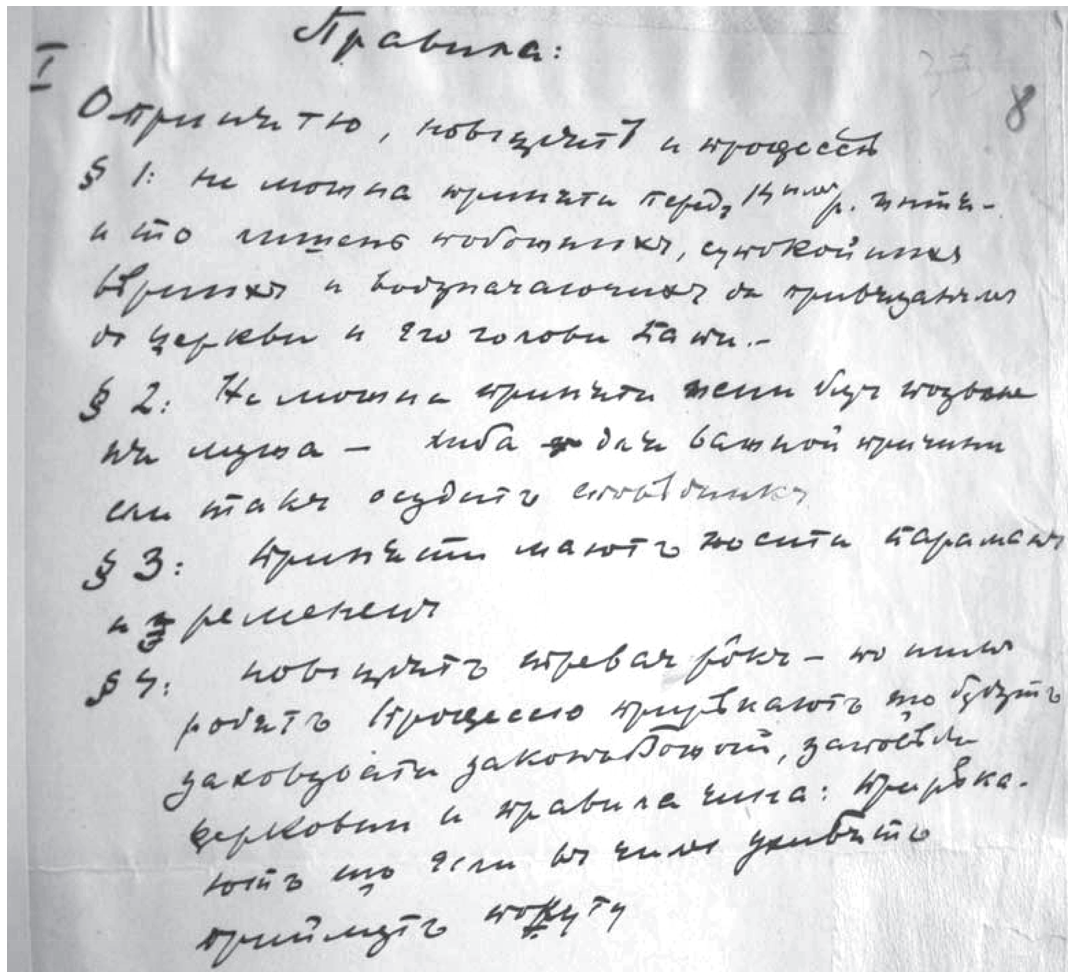 Правила:
I
8
О принятю, новіціятѣ и професіѣ
§ 1: не можна приняти передъ 14 тым р. життя-
и то лишень побожныхъ, супокойныхъ
вѣрныхъ и водзначаючихъ ся привязанямъ
до церкви и єго голови Папи.-
§ 2: Не можна приняти жени без позволе
ня мужа - хиба для важной причини
если такъ осудитъ сповѣдникъ
§ 3: Приняти маютъ носити параманъ
и ременець
§ 4: новіціятъ треває рôкъ - по нимъ
робятъ професію прирѣкаютъ що будутъ
заховувати законъ Божій, заповѣди
церковни и правила чина: прирѣка-
ютъ що если въ чимъ ухиблятъ
приймутъ покуту